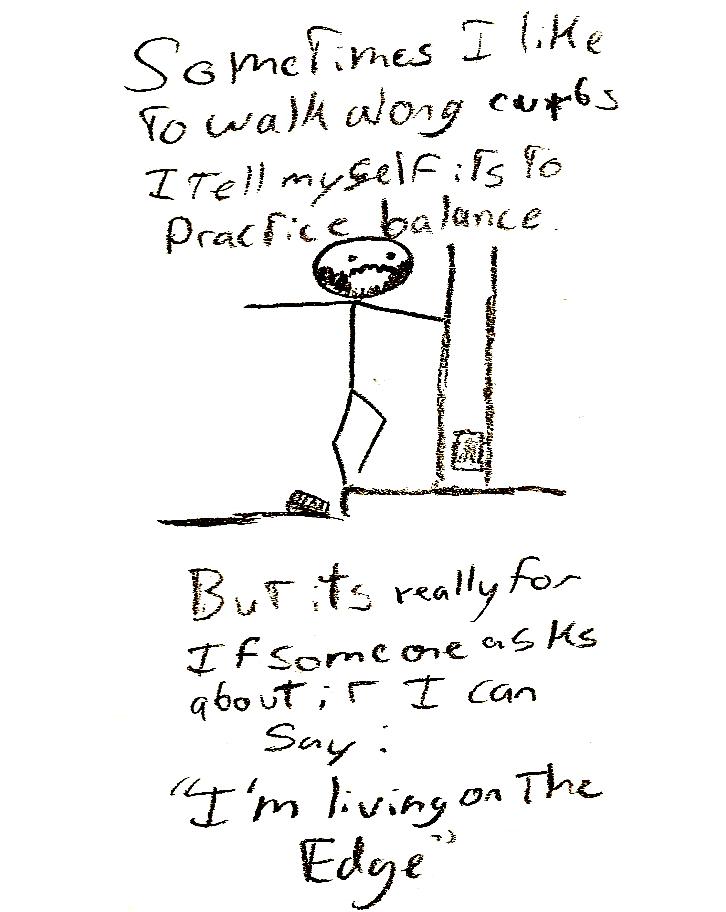 Sometimes I like
To walk along curbs
I Tell myself its To
Practice balance.
But its really for
If someone asks
about it I can
Say:
"I'm living on The
Edge"